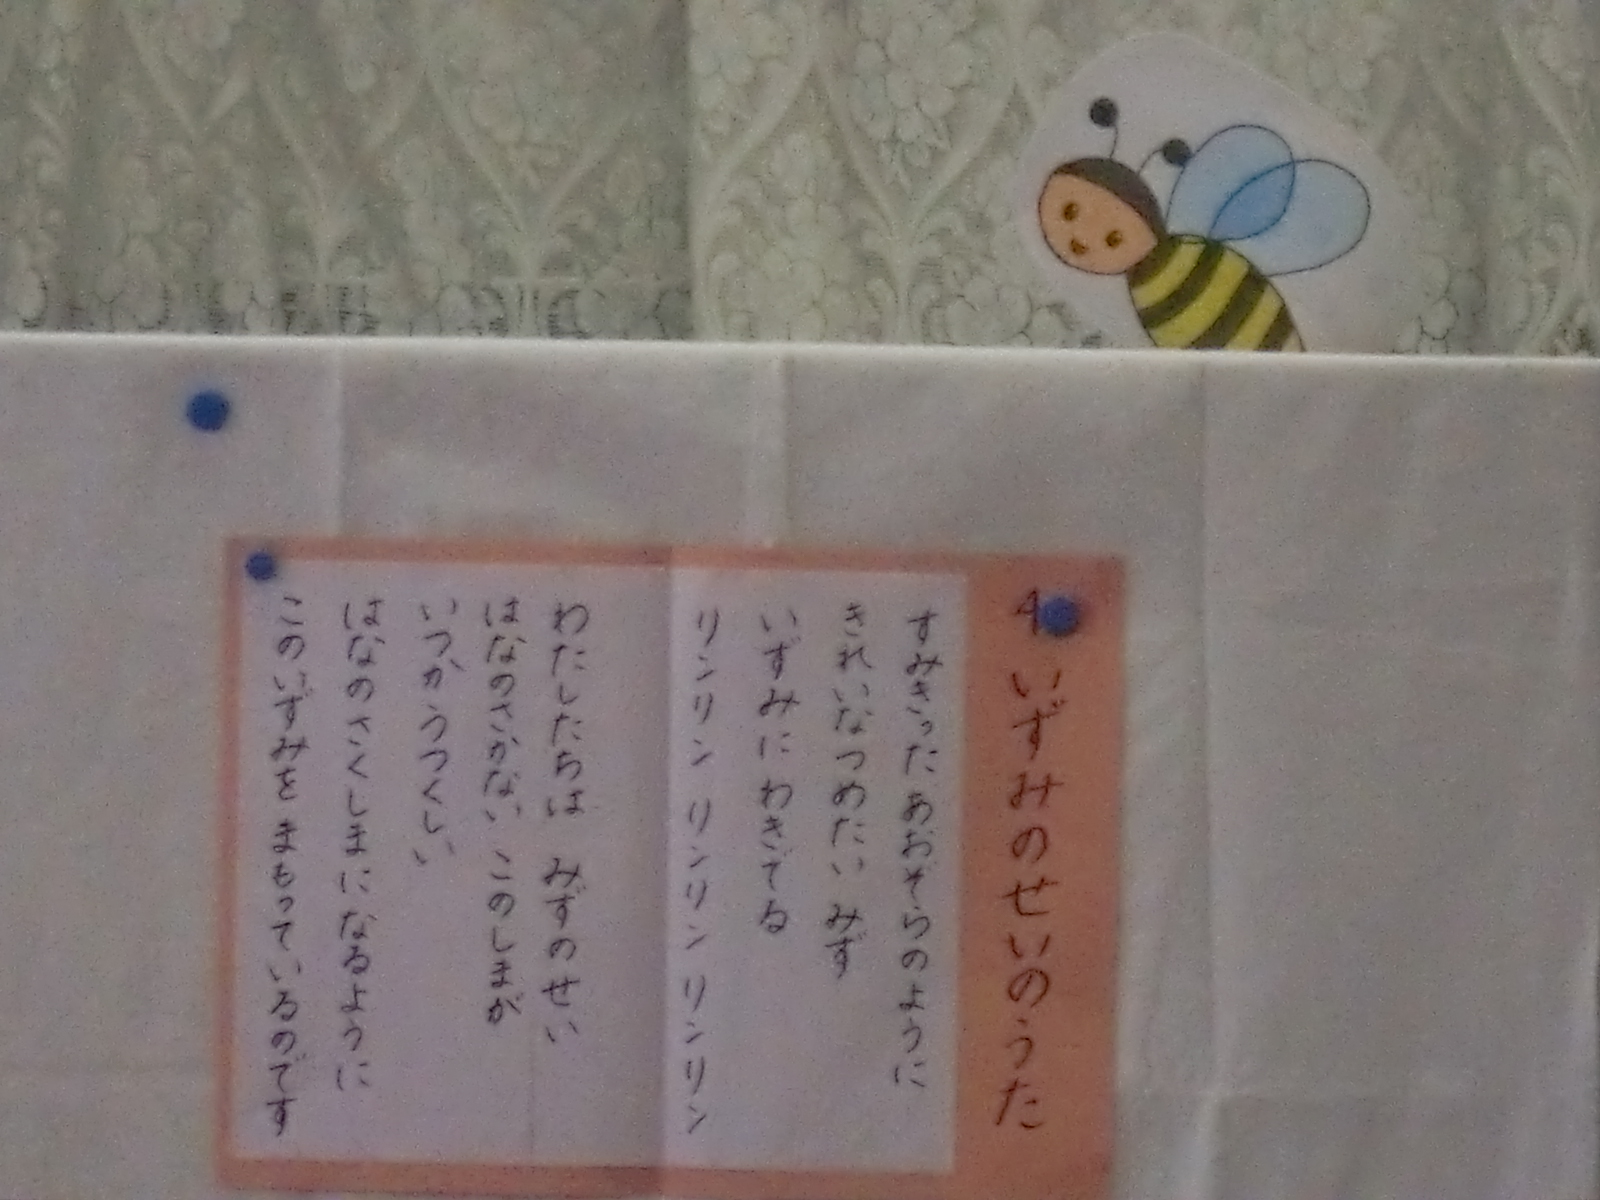 4 いずみのせいのうた
すみきったあおぞらのように
きれいなつめたい みず
いずみに わきでる
リンリン リンリン リンリン
わたしたちは みずのせい
はなのさかない このしまが
いつか うつくしい
はなのさくしまに なるように
このいずみを まもっているのです